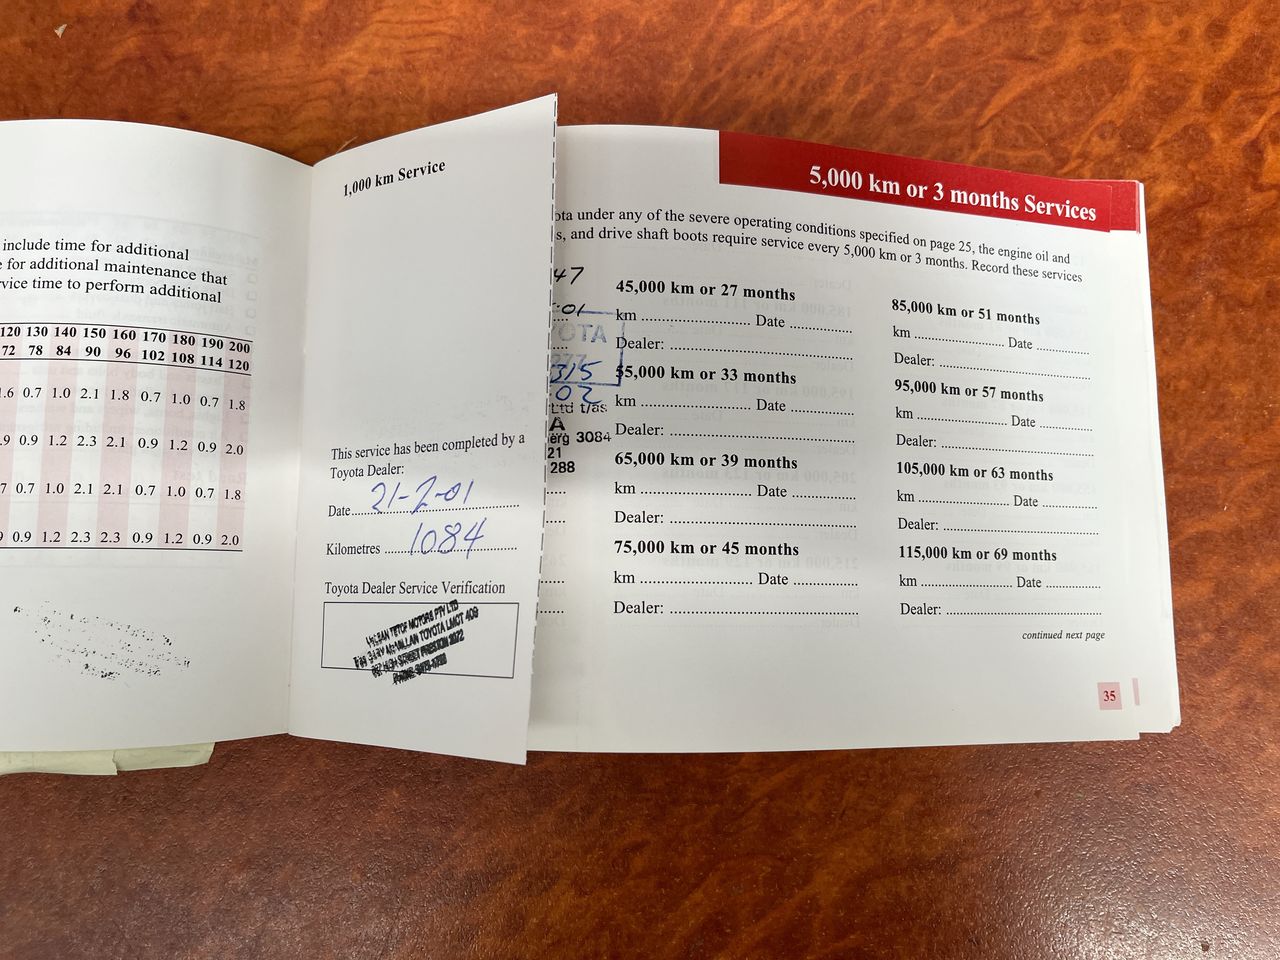 include time for additional
for additional maintenance that
rvice time to perform additional
120 130 140 150 160 170 180 190 200
72 78 84 90 96 102 108 114 120
1.6 0.7 1.0 2.1 1.8 0.7 1.0 0.7 1.8
.9 0.9 1.2 2.3 2.1 0.9 1.2 0.9 2.0
7 0.7 1.0 2.1 2.1 0.7 1.0 0.7 1.8
0.9 1.2 2.3 2.3 0.9 1.2 0.9 2.0
1,000 km Service
This service has been completed by a
Toyota Dealer:
Date 21-2-01
Kilometres 1084
Toyota Dealer Service Verification
MOTORS PTY LTD
TOYOTA LMCT 409
HIGH STREET PRESTON 3072
5,000 km or 3 months Services
ota under any of the severe operating conditions specified on page 25, the engine oil and
s, and drive shaft boots require service every 5,000 km or 3 months. Record these services
47
-01
OTA
277
315
02
Ltd t/as
A
erg 3084
21
288
45,000 km or 27 months
km .......................... Date ..............
Dealer: ............................................
55,000 km or 33 months
km .......................... Date ..............
Dealer: ............................................
65,000 km or 39 months
km .......................... Date ..............
Dealer: ............................................
75,000 km or 45 months
km .......................... Date ..............
Dealer: ............................................
85,000 km or 51 months
km .......................... Date ..............
Dealer: ............................................
95,000 km or 57 months
km .......................... Date ..............
Dealer: ............................................
105,000 km or 63 months
km .......................... Date ..............
Dealer: ............................................
115,000 km or 69 months
km .......................... Date ..............
Dealer: ............................................
continued next page
35